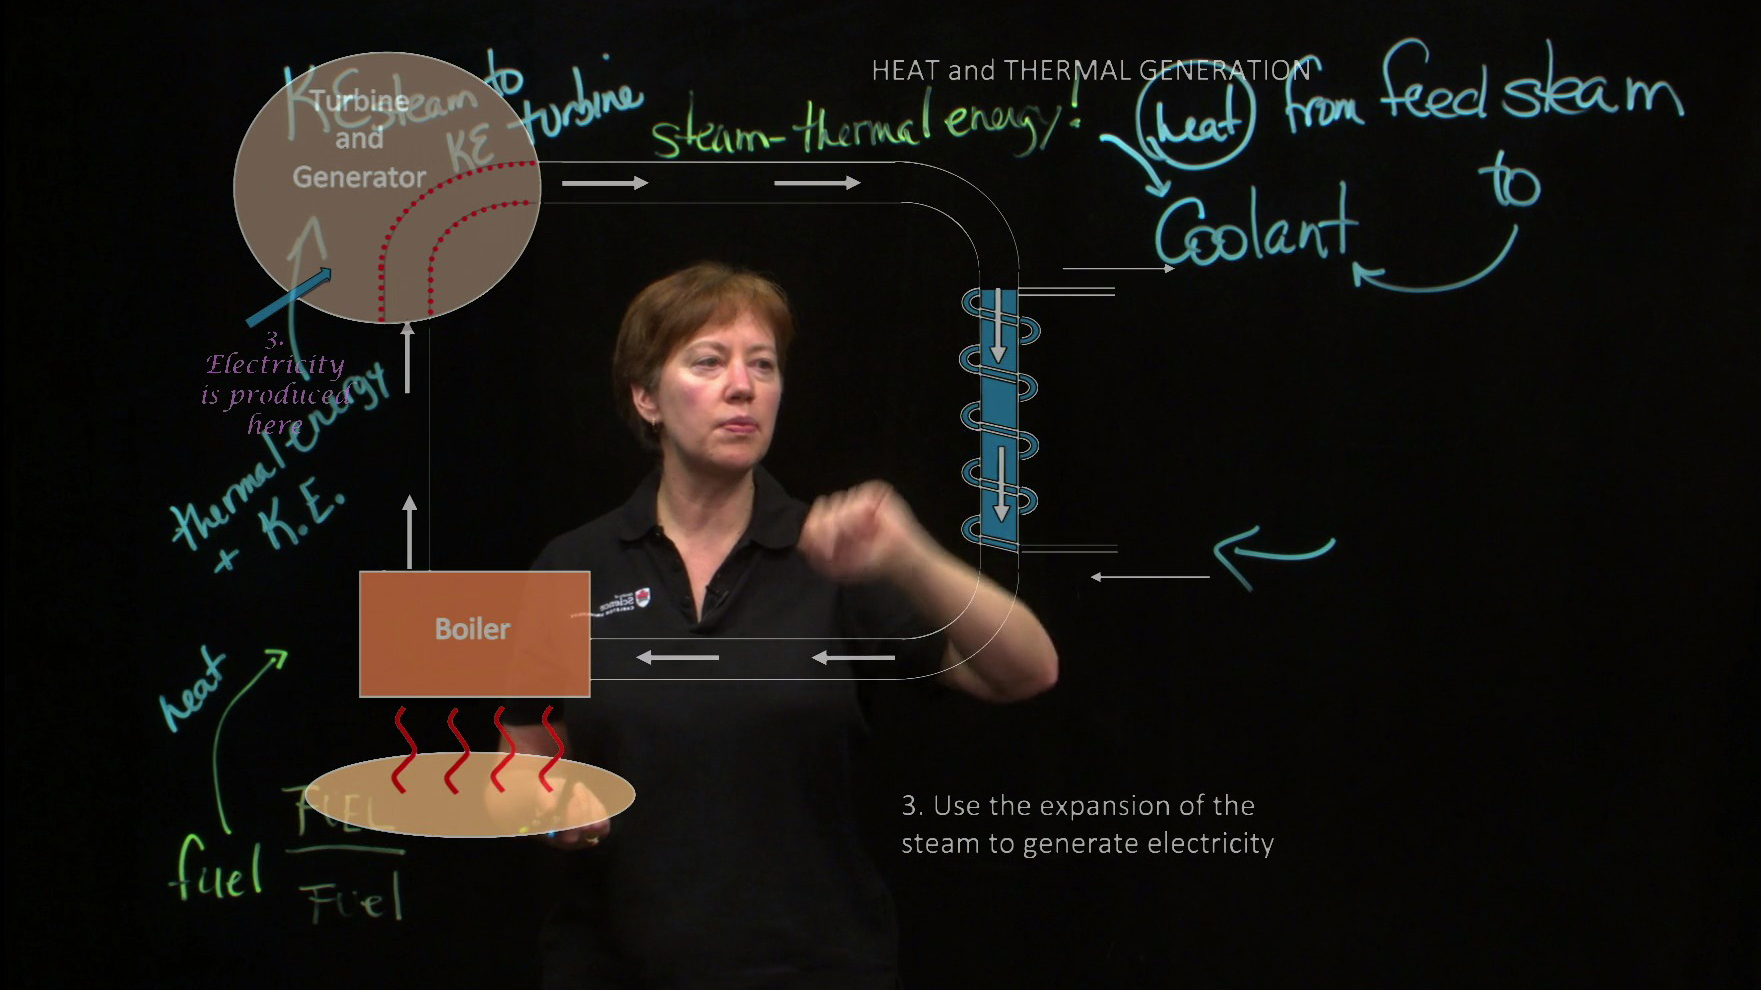 HEAT and THERMAL GENERATION
KE steam to
KE turbine
Turbine
and
Generator
steam-thermal energy!
heat from feed steam
to
Coolant
3.
Electricity
is produced
here
thermal energy
+ K.E.
Boiler
Science
heat
FUEL
fuel
Fuel
3. Use the expansion of the
steam to generate electricity